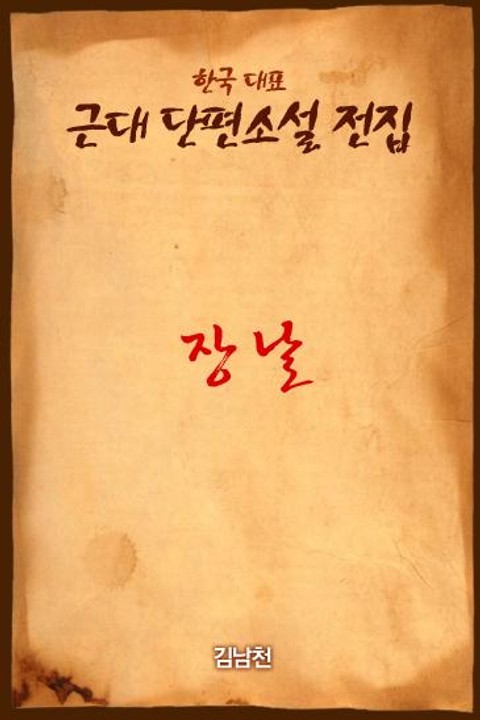 한국 대표
근대 단편소설 전집
장날
김남천